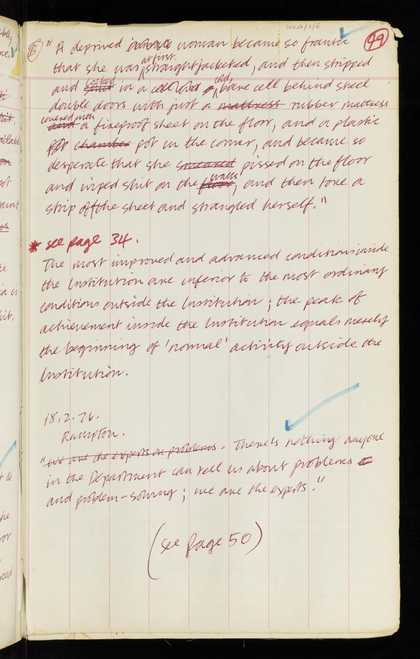 99
" A deprived woman became so frantic
that she was at first straightjacketed, and then stripped
and locked in a cold, bare cell behind steel
double doors with just a mattress rubber mattress
covered with a fireproof sheet on the floor, and a plastic
chamber pot in the corner, and became so
desperate that she smeared pissed on the floor
and wiped shit on the walls, and then tore a
strip off the sheet and strangled herself."
* see page 34.
The most improved and advanced conditions inside
the Institution are inferior to the most ordinary
conditions outside the Institution; the peak of
achievement inside the Institution equals merely
the beginning of 'normal' activity outside the
Institution.
18.2.76.
Rampton.
"we are the experts on problems. There is nothing anyone
in the Department can tell us about problems
and problem-solving; we are the experts."
(see page 50)